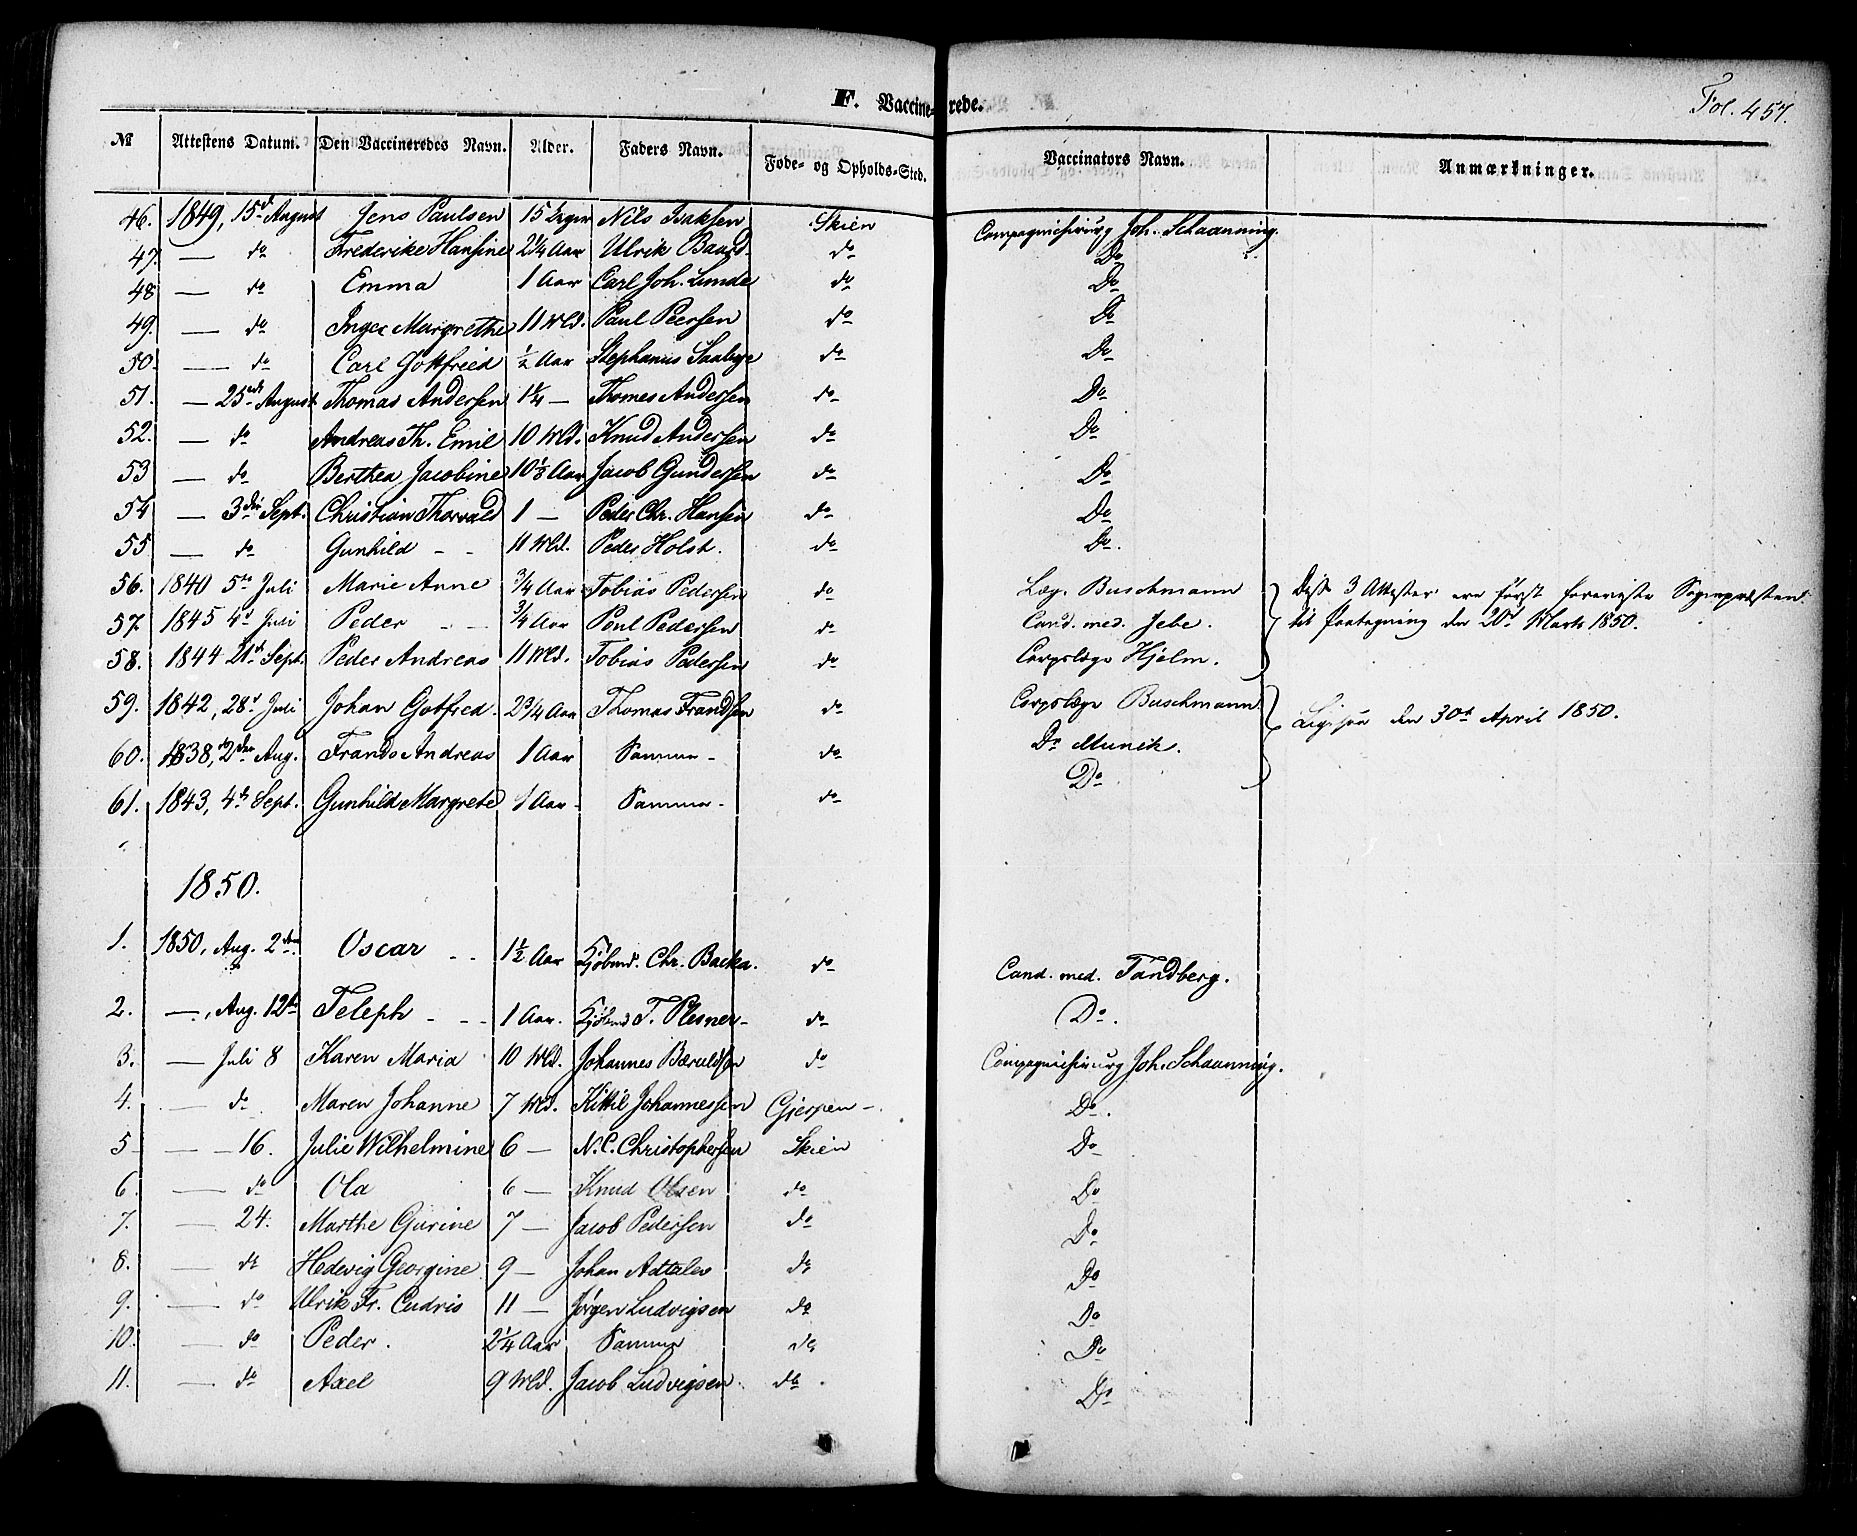 F. Vaccinerede.
Fol. 457.
№ Attestens Datum. Den Vaccineredes Navn. Alder. Faders Navn. Føde- og Opholds-Sted. Vaccinators Navn. Anmærkninger.
46. 1849, 15d August Jens Paulsen 15 Nils Isaksen Skien Compagniechirurg Joh. Schaanning.
47. — do Frederike Hansine 2 1/4 Aar Ulrik Baard. do Do
48 — do Emma 1 Aar Carl Joh. Linde do Do
49. — do Inger Margrethe 11 Mld. Paul Peersen do Do
50. — do Carl Gottfried 1/2 Aar Stephanus Saabye do Do
51. — 25de August Thomas Andersen 1 1/4 — Thomes Andersen do Do
52. — do Andreas Th. Emil 10 Mld. Knud Andersen do Do
53 — do Berthea Jacobine 10 1/2 Aar Jacob Gundersen do Do
54 — 3die Sept. Christian Thorvald 1 — Peder Chr. Hansen do Do
55 — do Gunhild - - 11 Mld. Peder Holst. do Do.
56. 1840 5te Juli Marie Anne 3/4 Aar Tobias Pedersen do Læge Buschmann Disse 3 Attester ere først foreviste Sognepræsten
57. 1845 4d Juli Peder - - 3/4 Aar Poul Pedersen do Cand. med. Jebe. til Paategning den 20d Marts 1850.
58. 1844 21d Sept. Peder Andreas 11 Mld. Tobias Pedersen do Corpslæge Hjelm.
59. 1842, 28d Juli Johan Gotfred. 2 3/4 Aar Thomas Frandsen do Corpslæge Buschmann Ligesaa den 30d April 1850.
60. 1838, 2den Aug. Frands Andreas 1 Aar Samme - do Do Munch.
61. 1843, 4d Sept. Gunhild Margrete 1 Aar - Samme - do Do
1850.
1. 1850, Aug. 2den Oscar - - 1 1/2 Aar Kjøbmd. Chr. Backa. do Cand. med. Tandberg.
2. —, Aug. 12te Teleph - - 1 Aar. Kjøbmd T. Plesner - do Do.
3. — Juli 8 Karen Maria 10 Mld. Johannes Bæruldsen do Compagniechirurg Joh. Schaanning.
4. — do Maren Johanne 7 Mld. Kittil Johannessen Gjerpen - Do.
5 — - 16. Julie Wilhelmine 6 — N. C. Christophersen Skien Do
6. — do Ola 6 — Knud Olsen do Do
7. — 24. Marthe Gurine 7 — Jacob Pedersen do Do
8. — do Hedevig Georgine 9 — Johan Adtelev do Do
9. — do Ulrik Fr. Cudris 11 — Jørgen Ludvigsen do Do
10. — do Peder. 2 1/4 Aar Samme do Do
11. — do Axel 9 Mld. Jacob Ludvigsen. do. Do